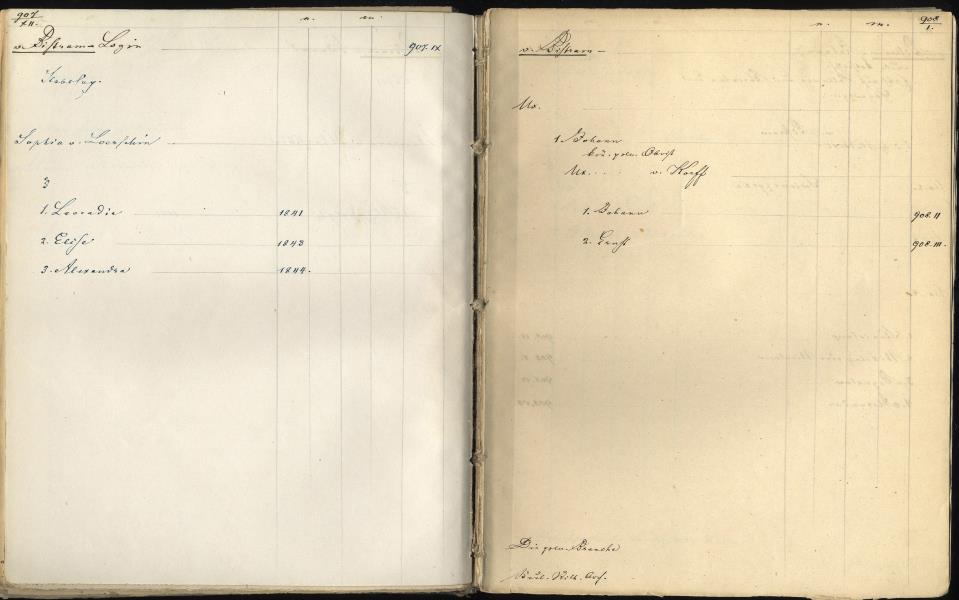 907
XII.
n. m.
v. Bistram Login 907. IX
Sophia v. Loewstein
3
1. Leocadie 1841
2. Elise 1843
3. Alexandra 1844.
n. m.
908
I.
v. Bistram
Ux.
1. Johann
poln. Obrist
Ux. . . . v. Korff
1. Johann 908. II
2. Ernst 908. III.
Die poln. Branche